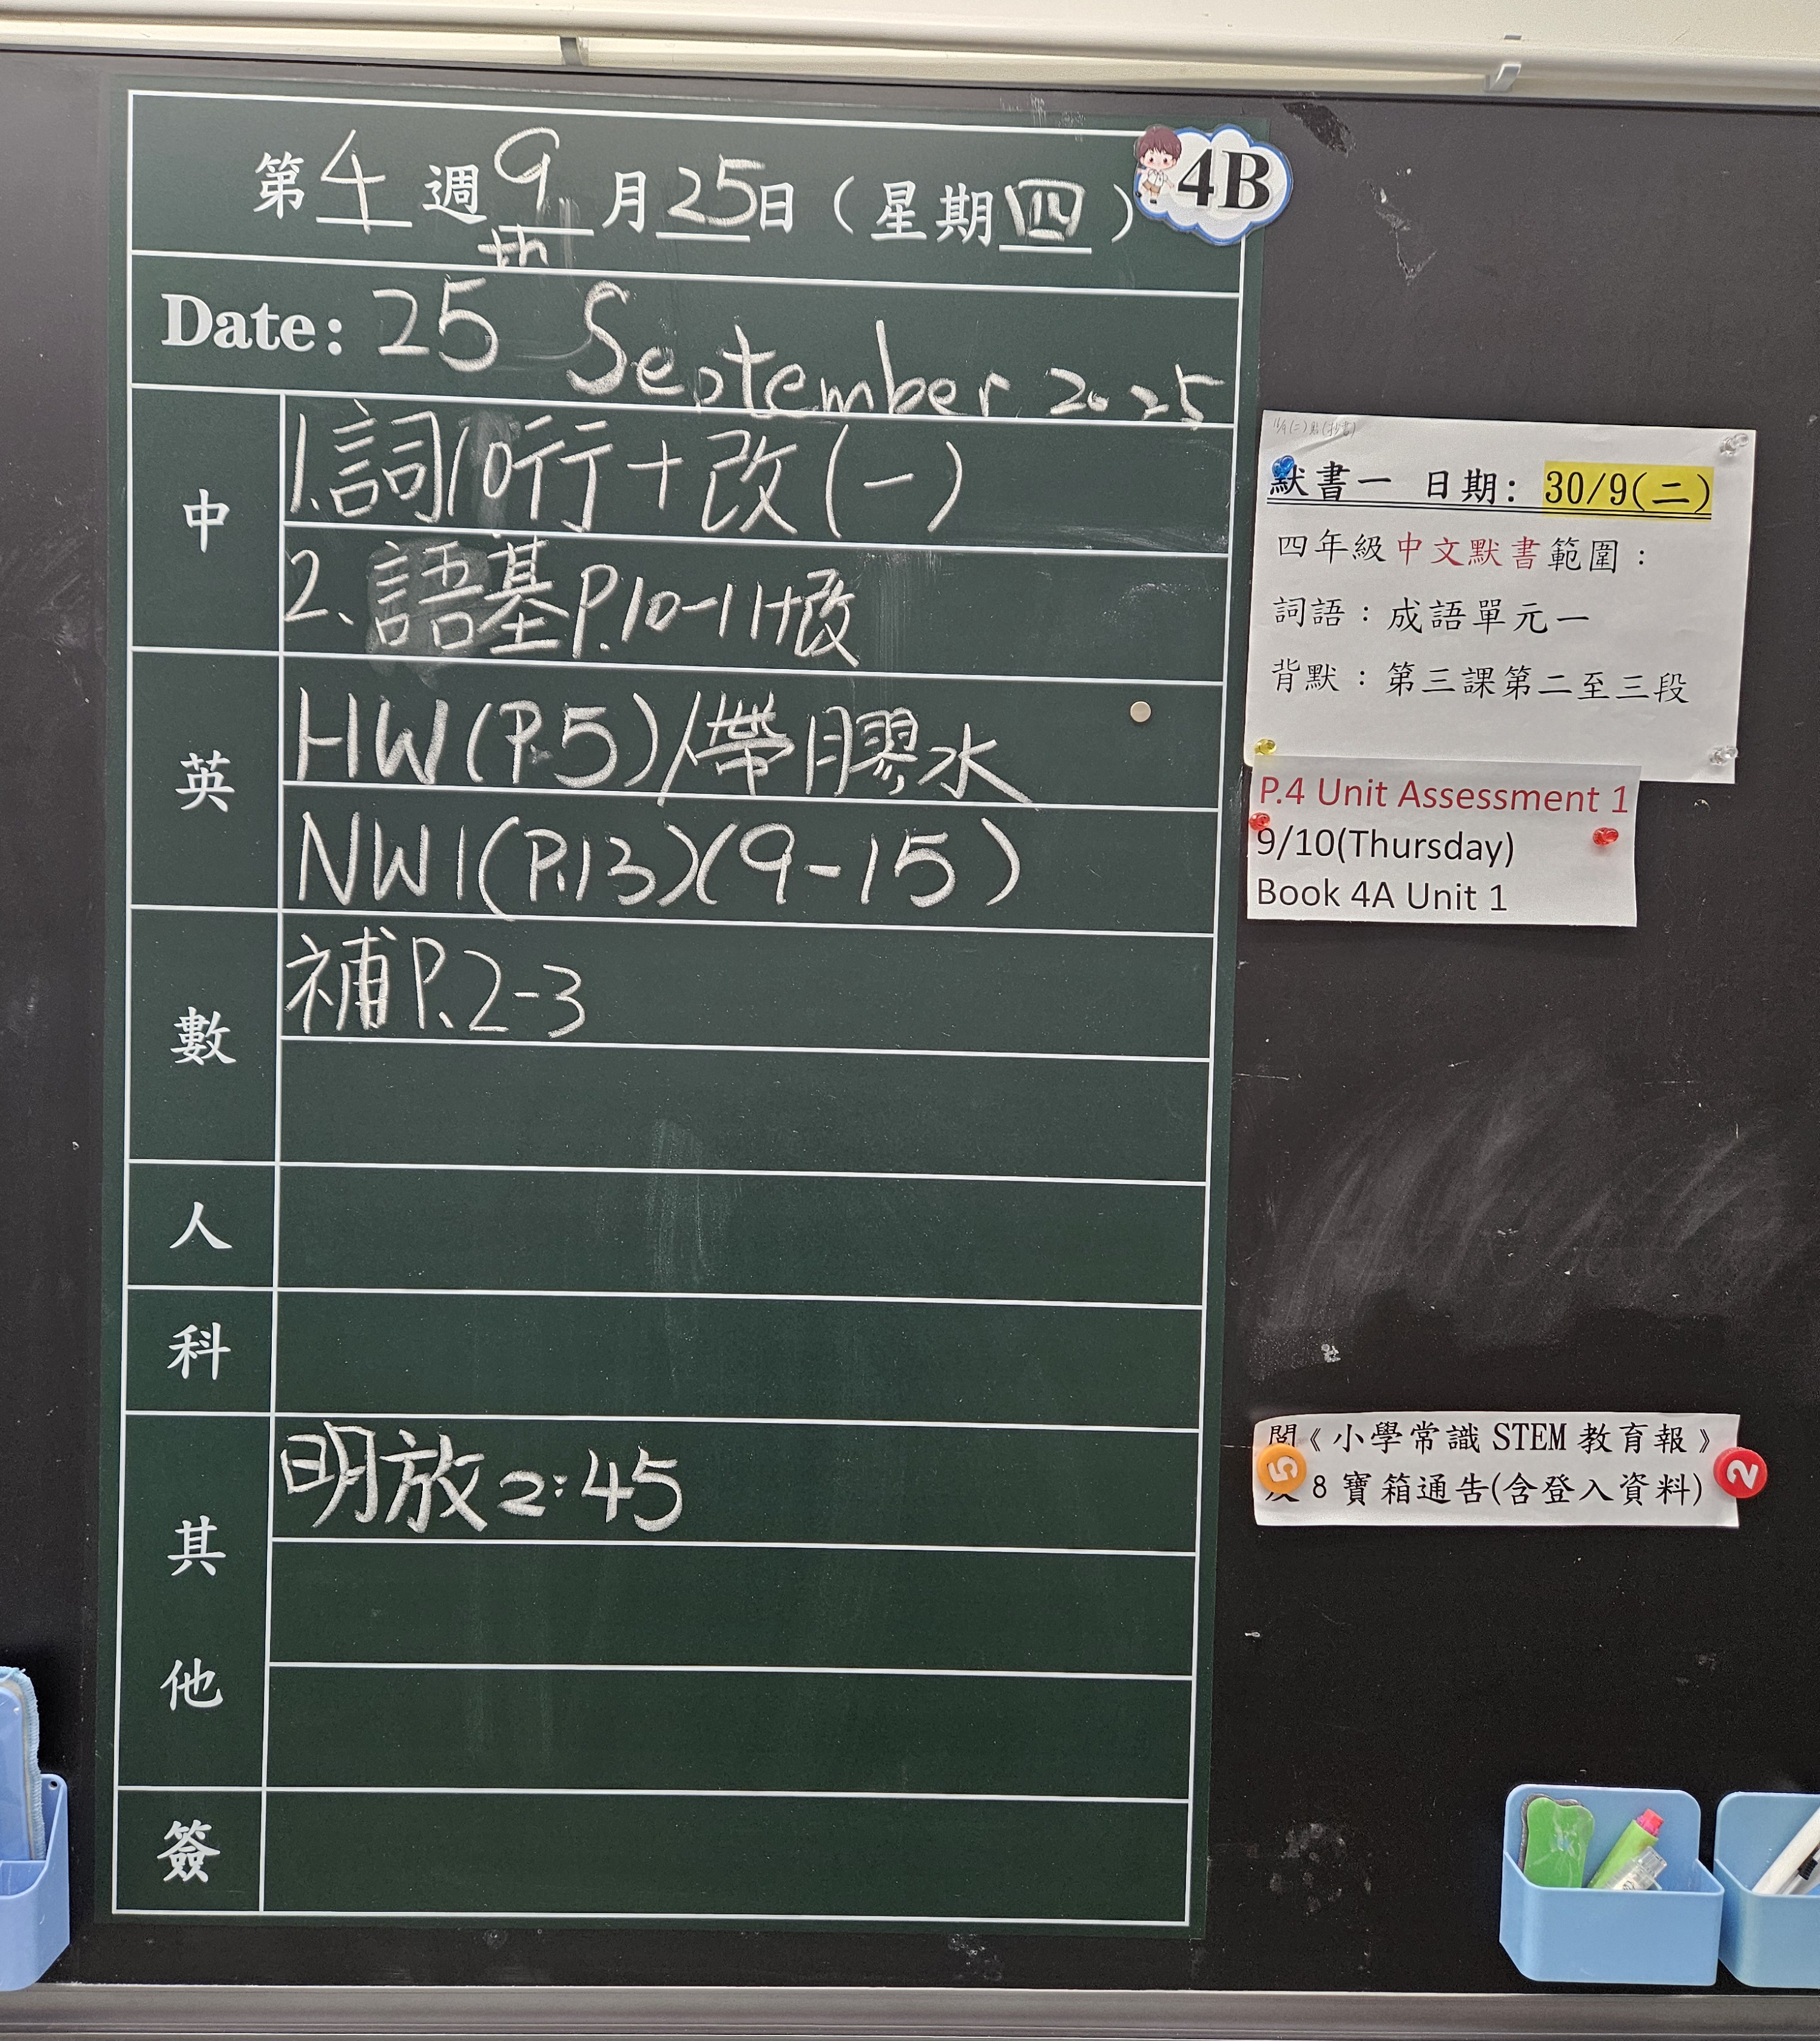 第4週9月25日（星期四）
4B
th
Date: 25 September 2025
中
1.詞10行+改(一)
2.語基P.10-11+改
英
HW(P.5)/帶膠水
NW1(P.13)(9-15)
數
補P.2-3
人
科
其他
明放2:45
簽
默書一 日期: 30/9(二)
四年級中文默書範圍：
詞語：成語單元一
背默：第三課第二至三段
P.4 Unit Assessment 1
9/10(Thursday)
Book 4A Unit 1
閱《小學常識 STEM 教育報》
8 寶箱通告(含登入資料)
5
2